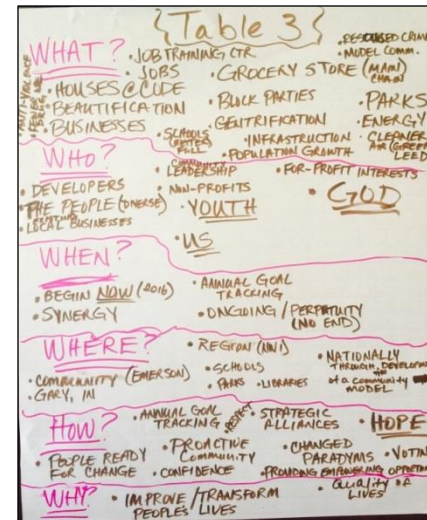 {Table 3}
WHAT?
• JOB TRAINING CTR.
• JOBS
• HOUSES @ CODE
• BEAUTIFICATION
• BUSINESSES
• SCHOOLS (BETTER) FULL
• GROCERY STORE (MAIN) CHAIN
• BLOCK PARTIES
• GENTRIFICATION
• INFRASTRUCTION
• POPULATION GROWTH
CRIME
• MODEL COMM.
• PARKS
• ENERGY
• CLEANER AIR (GREEN) LEED
WHO?
• DEVELOPERS
• THE PEOPLE (DIVERSE)
• LOCAL BUSINESSES
• COMMUNITY LEADERSHIP
• NON-PROFITS
• YOUTH
• US
• FOR-PROFIT INTERESTS
• GOD
WHEN?
• BEGIN NOW (2016)
• SYNERGY
• ANNUAL GOAL TRACKING
• ONGOING / PERPATUITY (NO END)
WHERE?
• COMMUNITY (EMERSON)
• GARY, IN
• REGION (NWI)
• SCHOOLS
• PARKS • LIBRARIES
• NATIONALLY
THROUGH
of a community
MODEL
HOW?
• PEOPLE READY FOR CHANGE
• ANNUAL GOAL TRACKING
RESPECT
• PROACTIVE COMMUNITY
• CONFIDENCE
• STRATEGIC ALLIANCES
• CHANGED PARADYMS
• PROVIDING EMPOWERING
• HOPE
WHY?
• IMPROVE / TRANSFORM PEOPLES LIVES
• Quality of LIVES